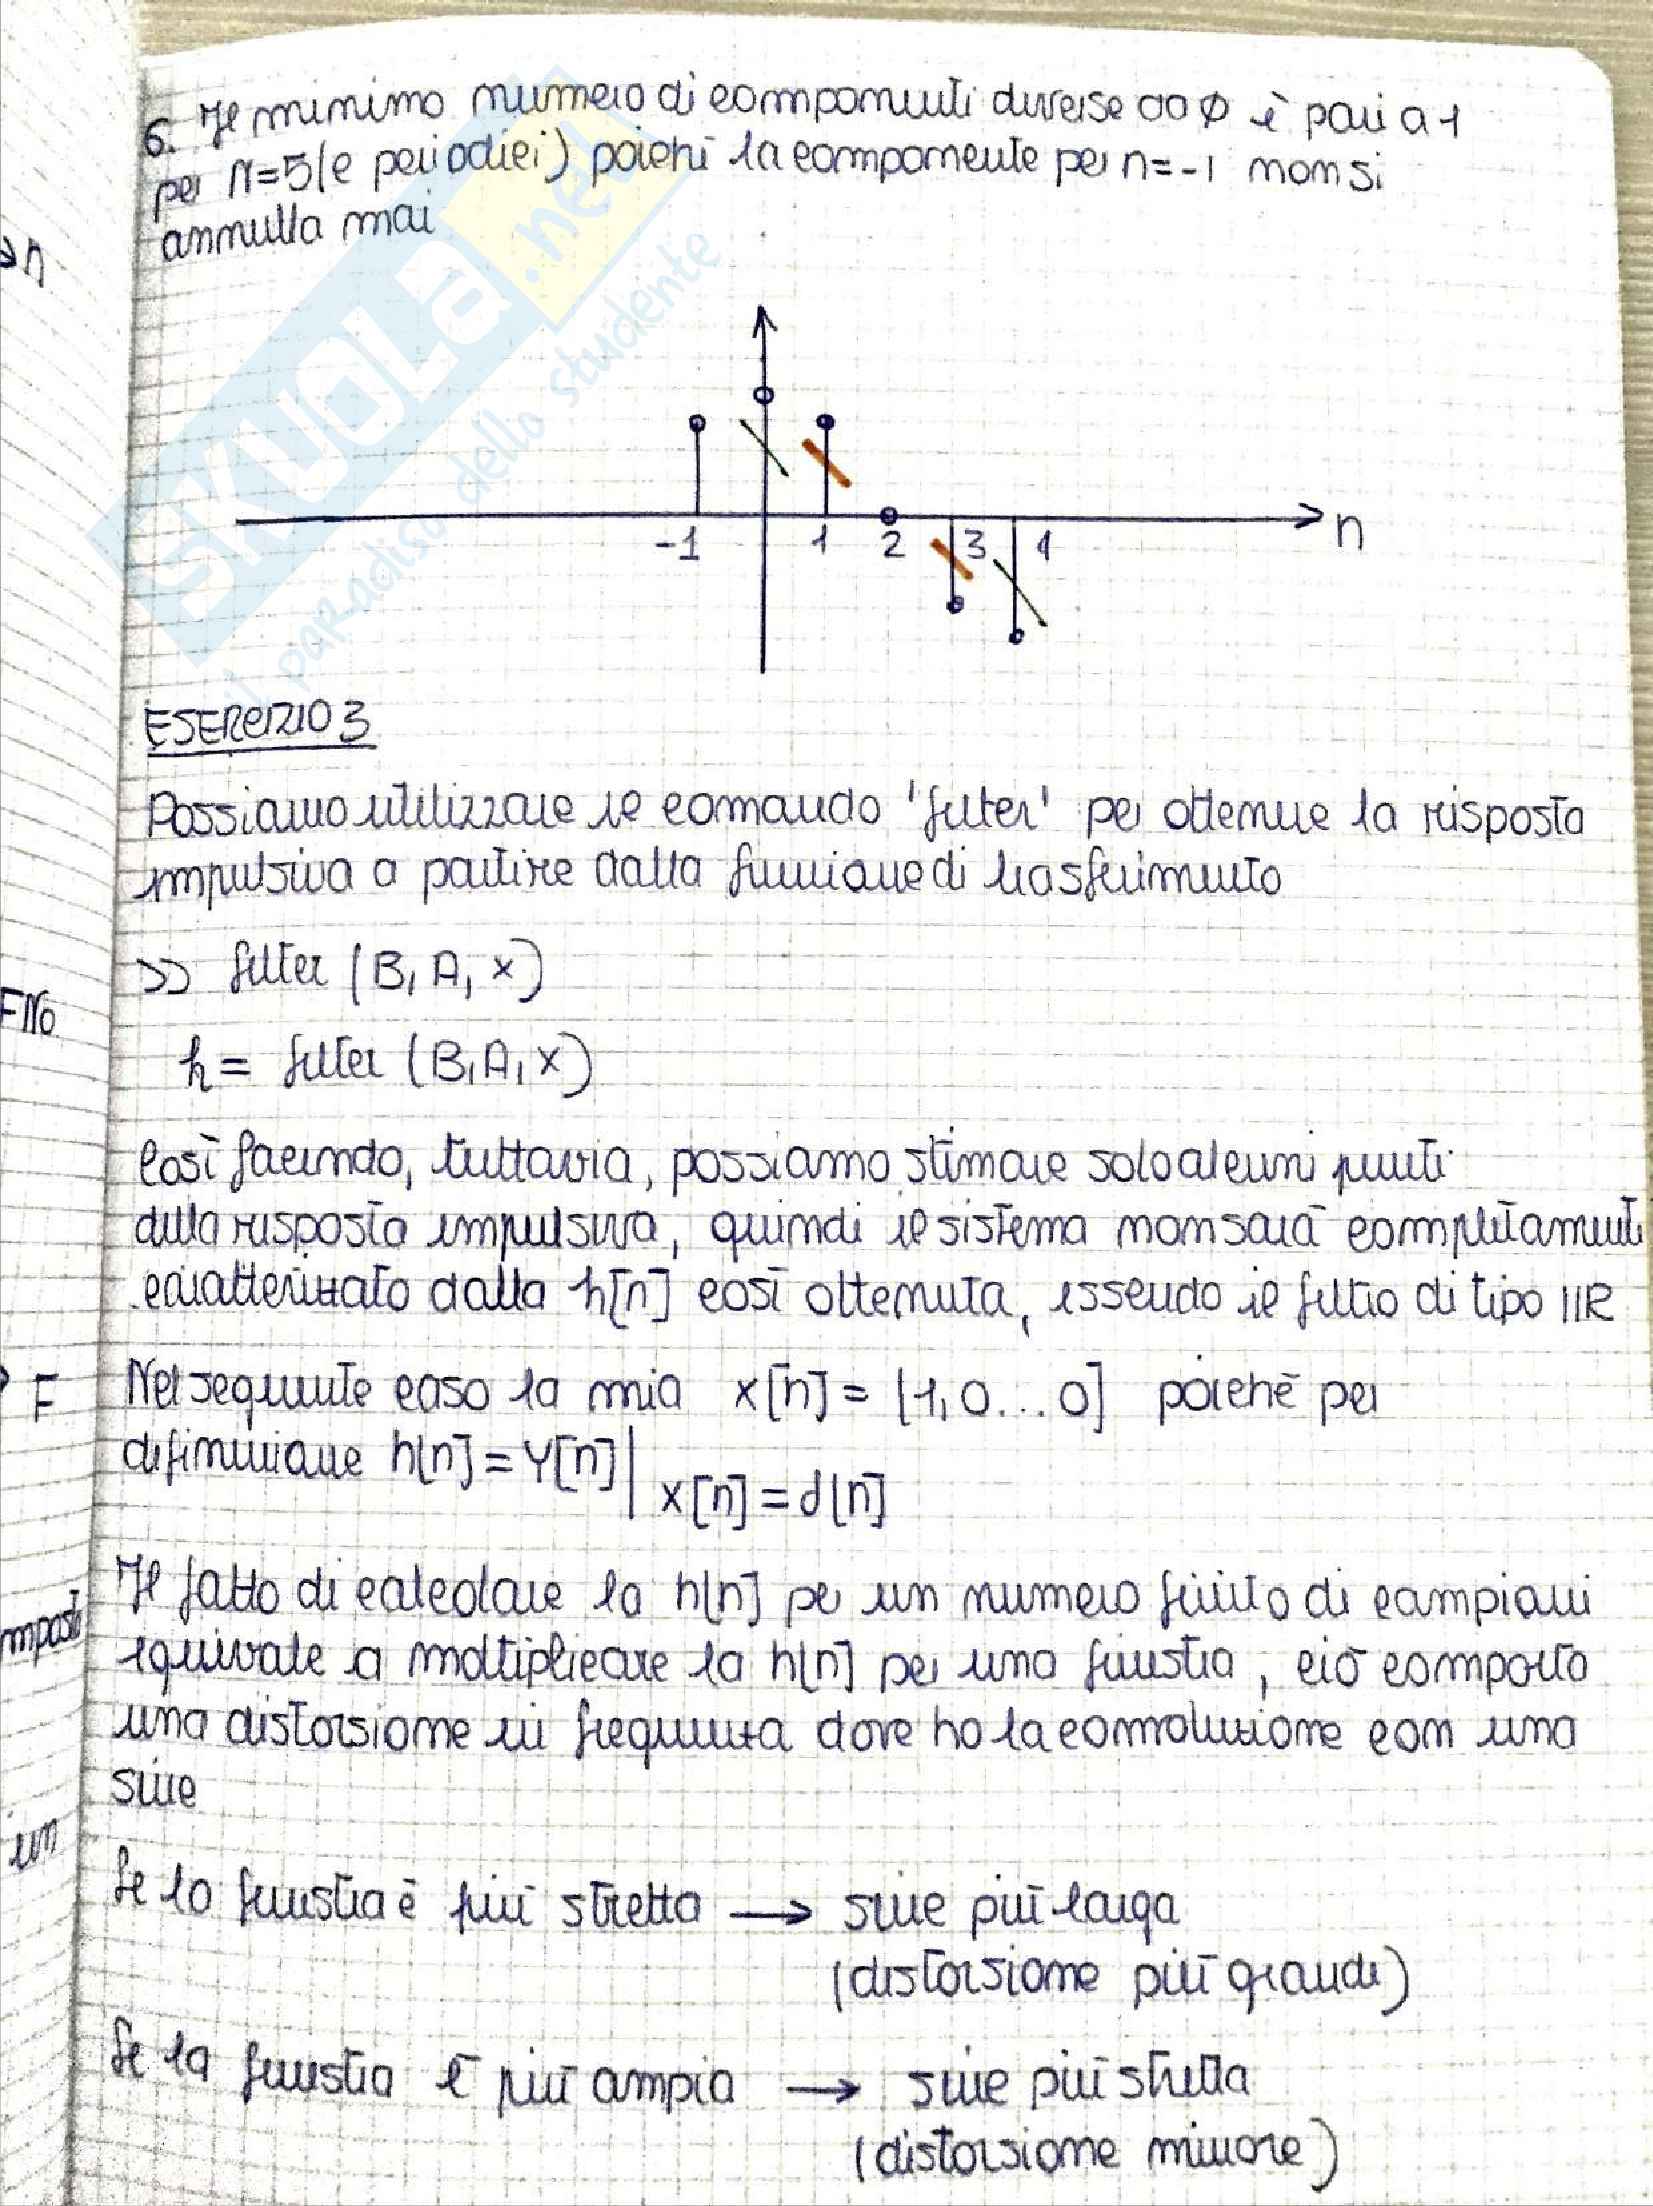 6. Il minimo numero di componenti diverse da ∅ è pari a 1
per N=5 (e periodici) poiché la componente per n=-1 non si
annulla mai
-1 1 2 3 4 n
ESERCIZIO 3
Possiamo utilizzare il comando 'filter' per ottenere la risposta
impulsiva a partire dalla funzione di trasferimento
>> filter (B, A, x)
h = filter (B, A, x)
Così facendo, tuttavia, possiamo stimare solo alcuni punti
della risposta impulsiva, quindi il sistema non sarà completamente
caratterizzato dalla h[n] così ottenuta, essendo il filtro di tipo IIR
Nel seguente caso la mia x[n] = [1, 0...0] poiché per
definizione h[n] = y[n] | x[n] = d[n]
Il fatto di calcolare la h[n] per un numero finito di campioni
equivale a moltiplicare la h[n] per una finestra, ciò comporta
una distorsione in frequenza dove ho la convoluzione con una
sinc
Se la finestra è più stretta → sinc più larga
(distorsione più grande)
Se la finestra è più ampia → sinc più stretta
(distorsione minore)
n
F
un
SKUOLA.net
il paradiso dello studente